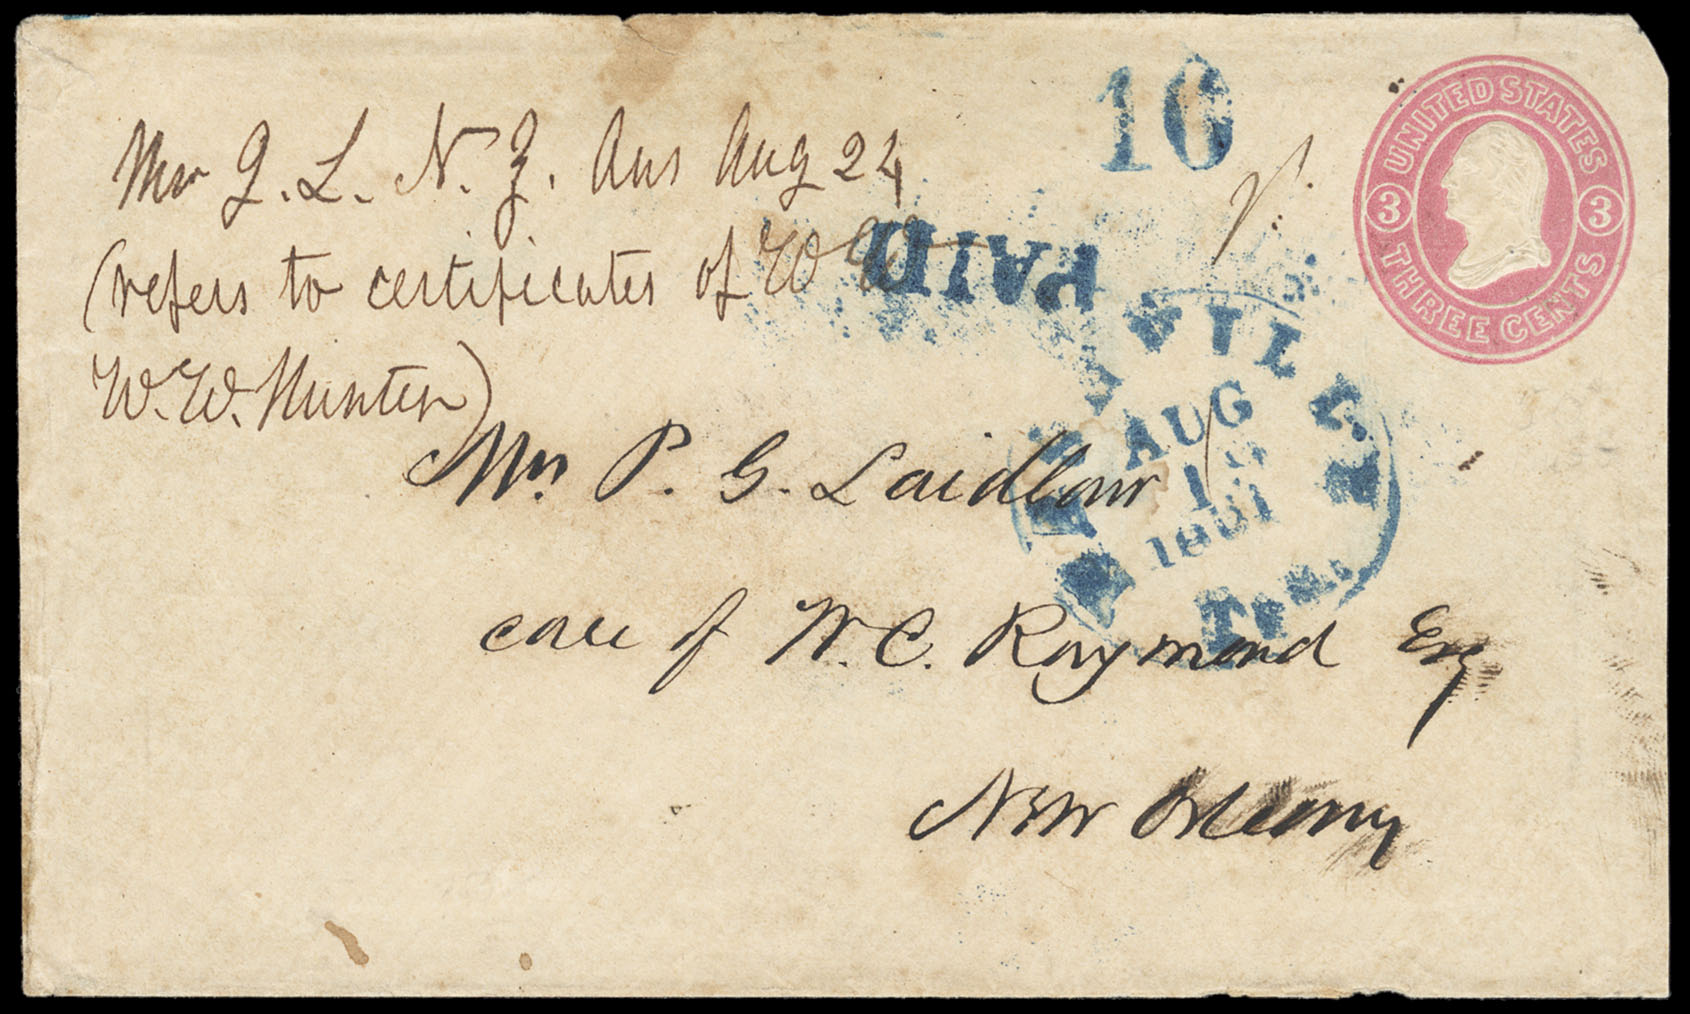 10
UNITED STATES
3 3
THREE CENTS
J. L. N. Z. Ans Aug 24
(refers to certificates of W
W. W. Hunter)
PAID
NASHVILLE
AUG
1861
Ten.
P. G. Laidlaw
care of W. C. Raymond Esq
New Orleans